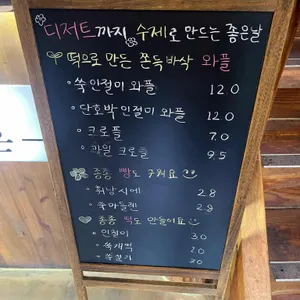 디저트까지 수제로 만드는 좋은날
떡으로 만든 쫀득바삭 와플
· 쑥인절미 와플 12.0
· 단호박인절미 와플 12.0
· 크로플 7.0
· 과일 크로플 9.5
종종 빵도 구워요
· 휘낭시에 2.8
· 쑥마들렌 2.9
종종 떡도 만들어요
· 인절미 3.0
· 쑥개떡
· 쑥설기